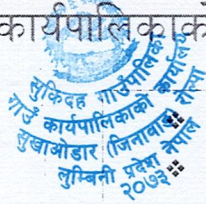 कार्यपालिकाको
सुकिदह गाउँपालिका
गाउँ कार्यपालिकाको कार्यालय
सुखाओडार (जिनावाङ) रोल्पा
लुम्बिनी प्रदेश नेपाल
२०७३